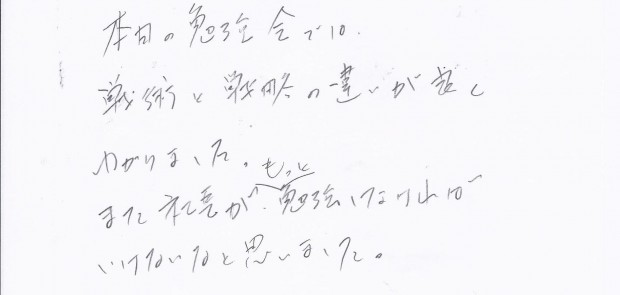 本日の勉強会では、
戦術と戦略の違いが少し
わかりました。もっと
また 々が 勉強しなければ
いけないなと思いました。